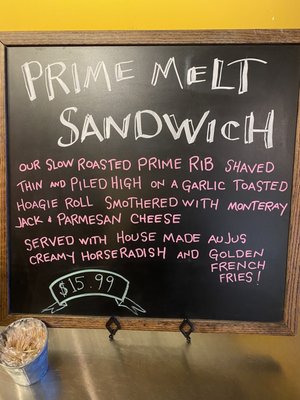 PRIME MELT
SANDWICH
OUR SLOW ROASTED PRIME RIB SHAVED
THIN AND PILED HIGH ON A GARLIC TOASTED
HOAGIE ROLL SMOTHERED WITH MONTERAY
JACK & PARMESAN CHEESE
SERVED WITH HOUSE MADE AUJUS
CREAMY HORSERADISH AND GOLDEN
FRENCH
FRIES!
$15.99